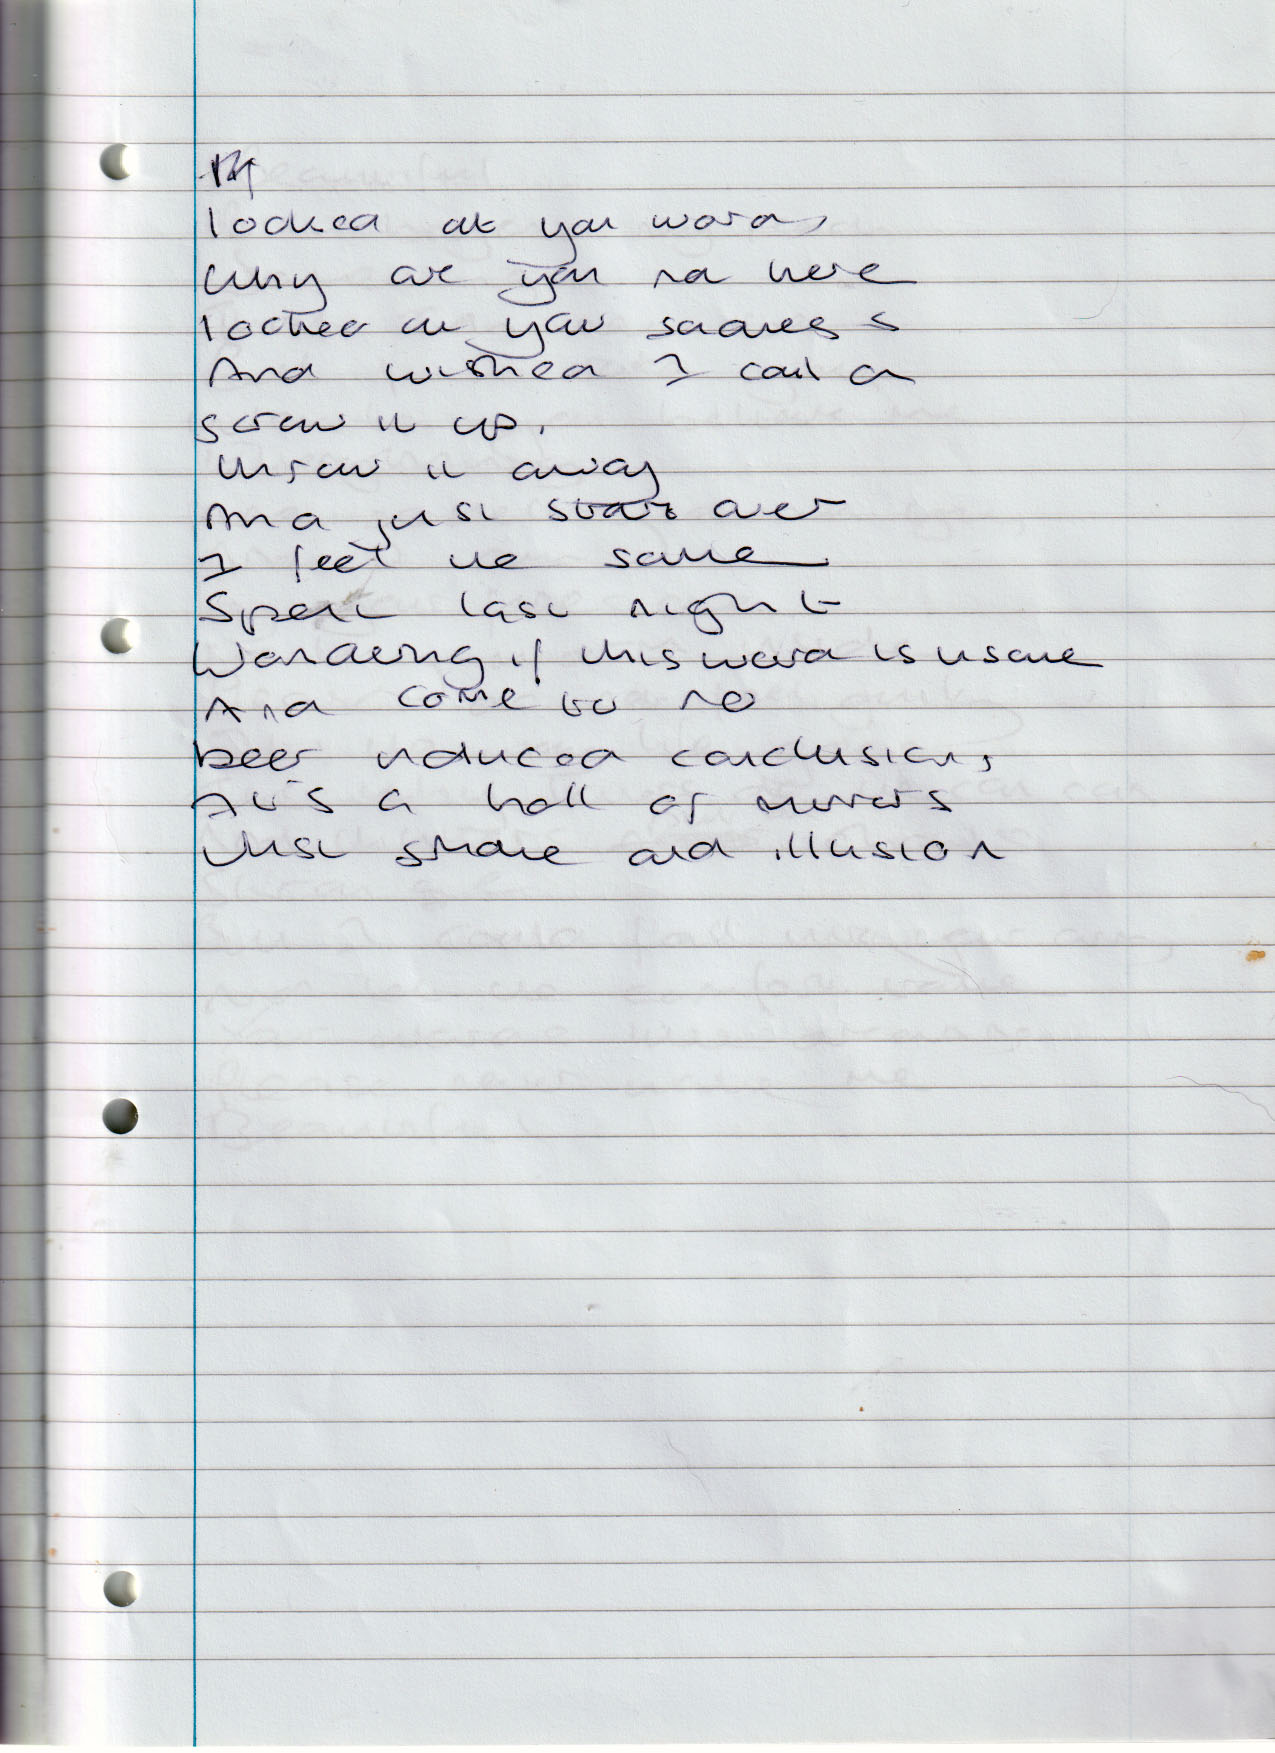 looked at your words,
Why are you not here
looked at your sadness
And wished I could
screw it up,
throw it away
And just start over
I feel the same
Spent last night
Wondering if this world is insane
And came to no
beer induced conclusion,
It's a hall of mirrors
Just smoke and illusion